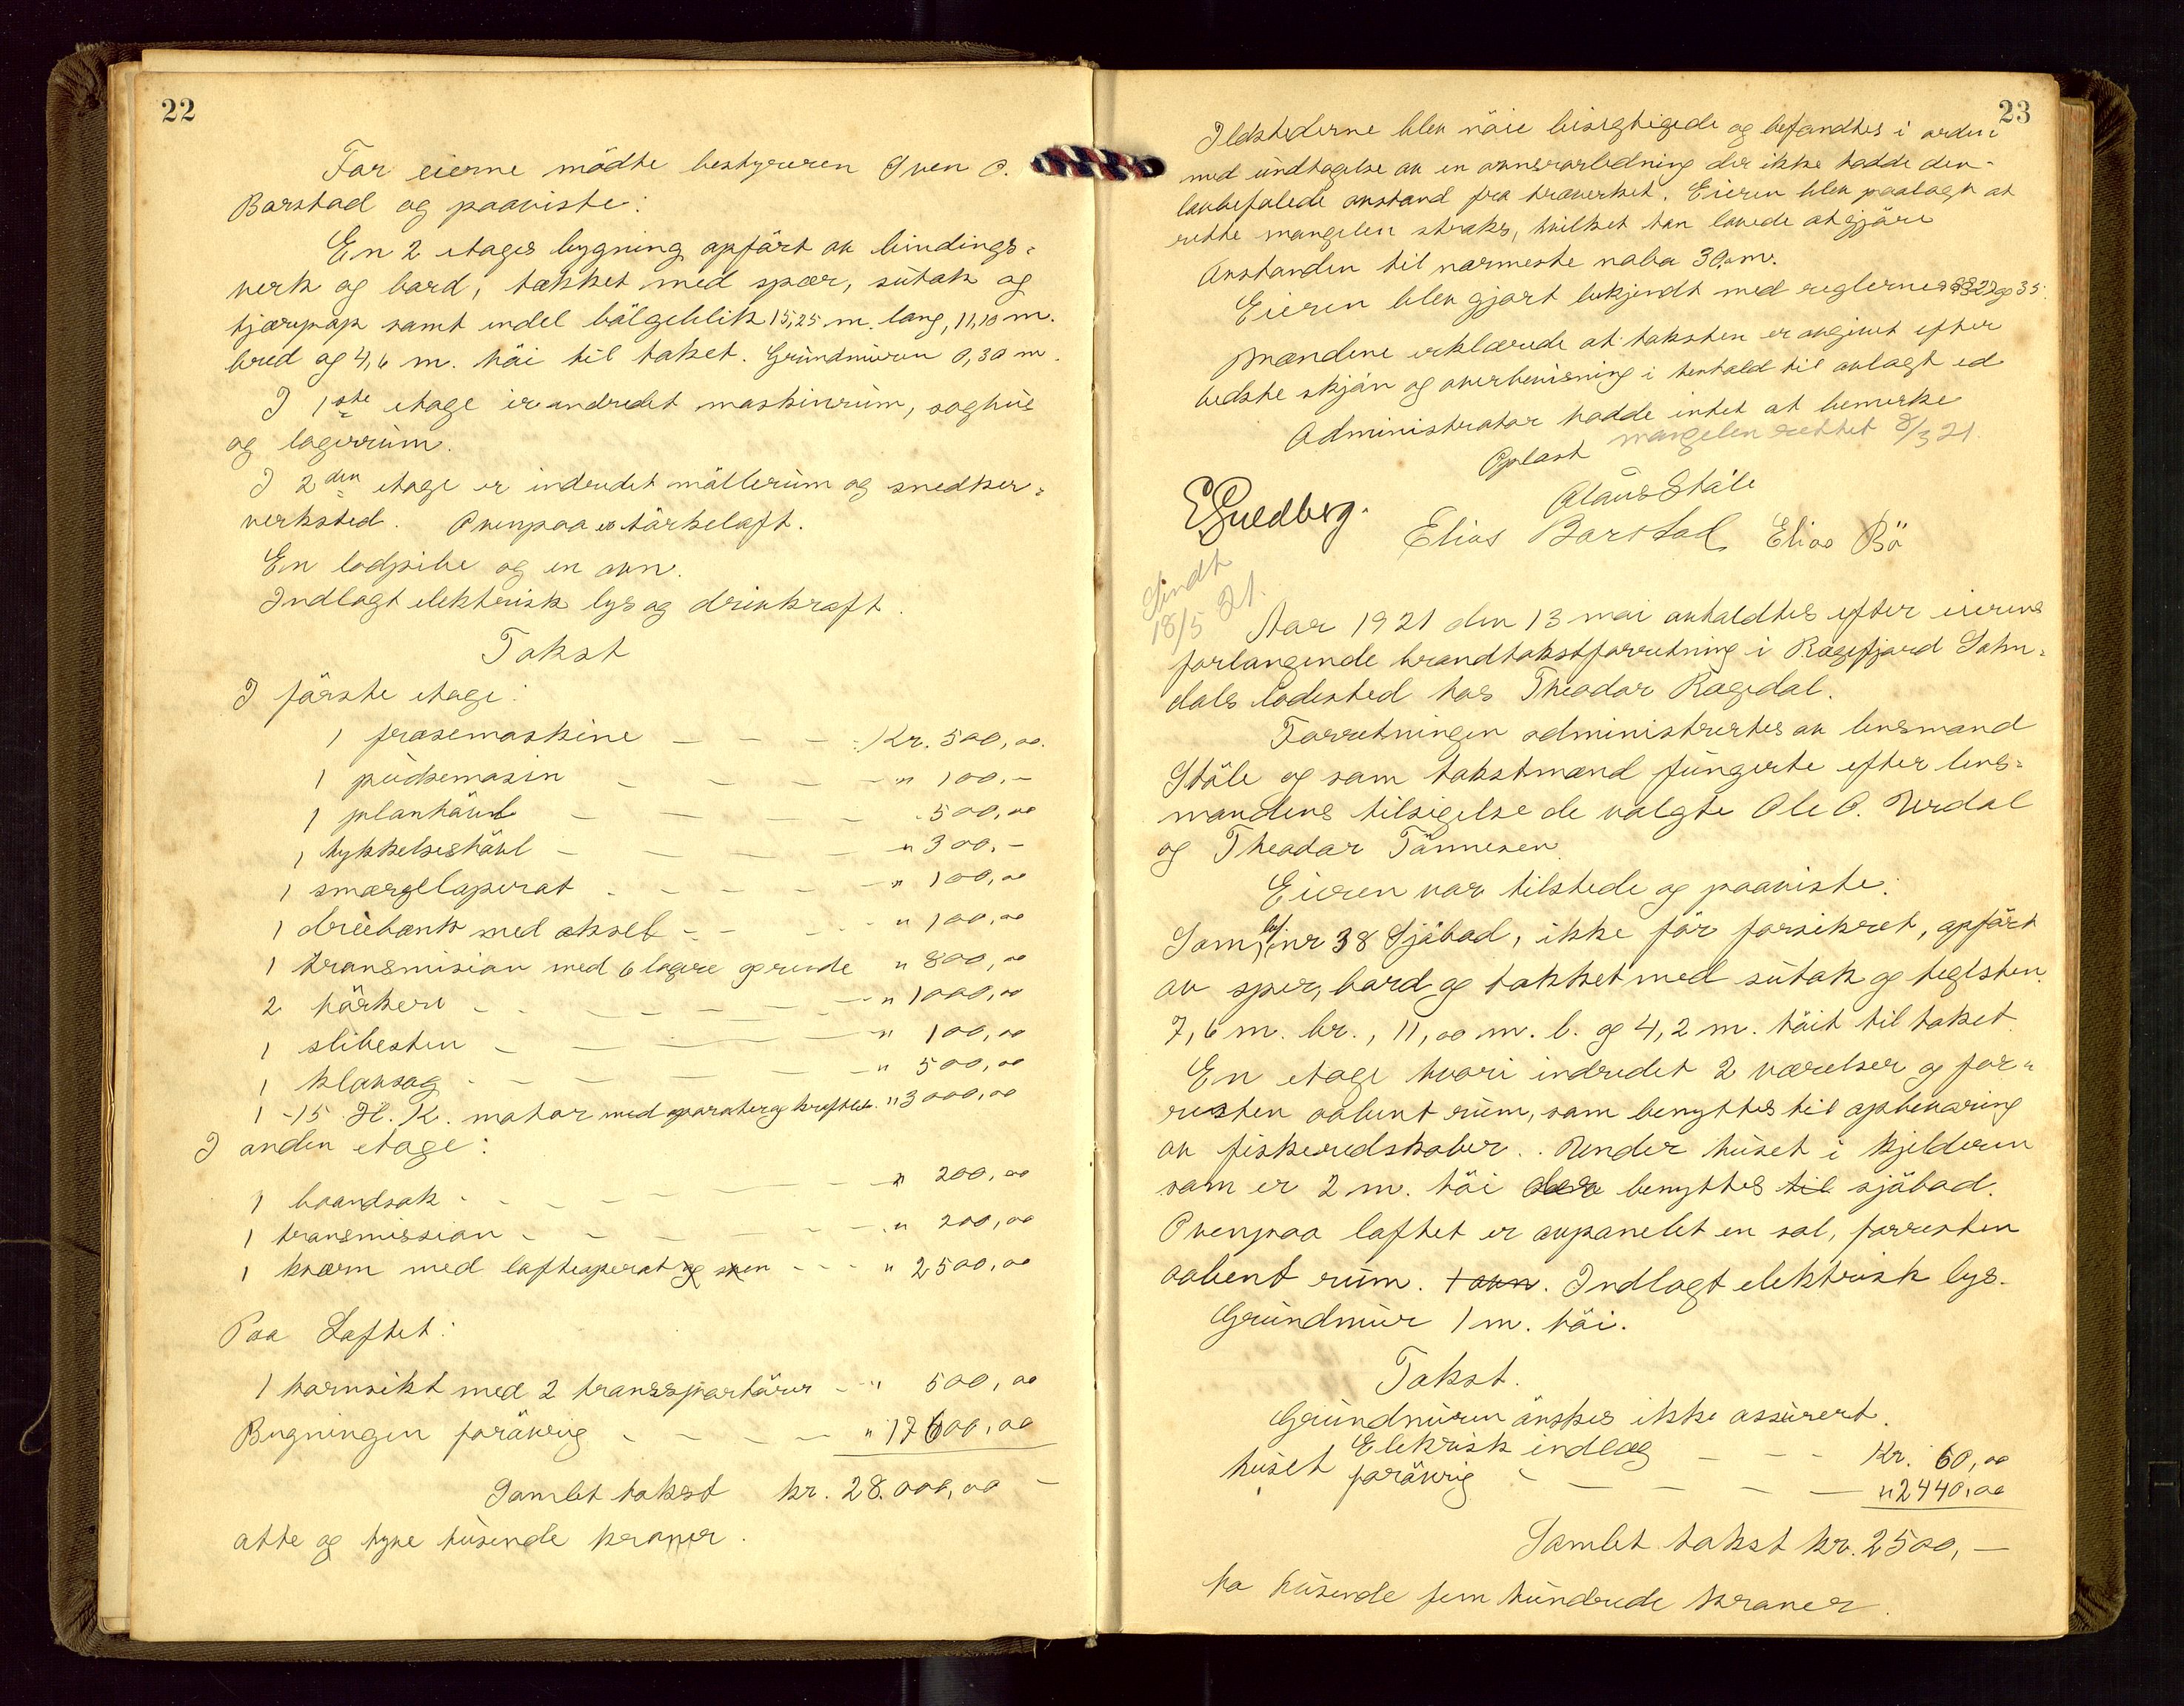 22
For eierne mödte bestyreren Sven O.
Barstad og paaviste:
En 2 etages bygning opfört av bindings=
verk og bord, tækket med spær, sutak og
tjærepap samt endel bölgeblik 15,25 m. lang, 11,10 m.
bred og 4,6 m. höi til taket. Grundmuren 0,30 m.
I 1ste etage er indredet maskinrum, saghus
og lagerrum.
I 2den etage er indredet möllerum og snedker=
verksted. Ovenpaa er törkeloft.
En lodpibe og en ovn.
Indlagt elektrisk lys og drivkraft.
Takst
I förste etage:
1 fræsemaskine - - - Kr. 500,00.
1 pudsemasin - - - - " 100,-
1 planhövl - - - - 500,00
1 tykkelseshövl - - - - " 300,-
1 smærgelaperat - - - - " 100,00
1 dreiebænk med aksel - - - - " 100,00
1 transmision med 6 lagere og reide " 800,00
2 törkere - - - - - " 1000,00
1 slibesten - - - - " 100,00
1 klovsag - - - - - " 500,00
1 -15 H. K. motor med aparater og kraftled. " 3000,00
I anden etage:
1 baandsak - - - - - " 200,00
1 transmission - - - - - " 200,00
1 kværn med lofteaperat og sten - - - " 2500,00
Paa Loftet:
1 kornsikt med 2 transsportörer - " 500,00
Bygningen forövrig - - - - " 17600,00
Samlet takst kr. 28.000,00 -
otte og tyve tusende kroner.
23
Ildstederne blev nöie besigtigede og befandtes i orden
med undtagelse av en ovnsrørledning der ikke hadde den
lovbefalede avstand fra træverket. Eieren blev paalagt at
rette mangelen straks, hvilket han lovede at gjöre
Avstanden til nærmeste nabo 30 m.
Eieren blev gjort bekjendt med reglernes §§ 27 og 35.
Mændene erklærede at taksten er avgivet efter
bedste skjön og overbevisning i henhold til avlagt ed
Administrator hadde intet at bemerke
Oplæst mangelen rettet 8/3 21.
Olaus Ståle
E Guedberg. Elias Barstad Elias Bö
Sendt
18/5 21.
Aar 1921 den 13 mai avholdtes efter eierens
forlangende brandtakstforretning i Rægefjord Sokn=
dals ladested hos Theodor Rægedal.
Forretningen administrertes av lensmand
Ståle og som takstmænd fungerte efter lens=
mandens tilsigelse de valgte Ole O. Urdal
og Theodor Tönnesen.
Eieren var tilstede og paaviste:
Som br nr 38 Sjöbod, ikke för forsikret, opfört
av sper, bord og tækket med sutak og teglsten.
7,6 m. br., 11,00 m. l. og 4,2 m. höit til taket.
En etage hvori indredet 2 værelser og for=
resten aabent rum, som benyttes til opbevaring
av fiskeredskaber. Under huset i kjelderen
som er 2 m. höi benyttes til sjöbod.
Ovenpaa loftet er avpanelet en sal, forresten
aabent rum. 1 ovn. Indlagt elektrisk lys.
Grundmur 1 m. höi.
Takst.
Grundmuren önskes ikke assurert.
Elekrisk indlæg - - - Kr. 60,00
huset forövrig - - - - - " 2440,00
Samlet takst kr. 2500,-
to tusende fem hundrede kroner.